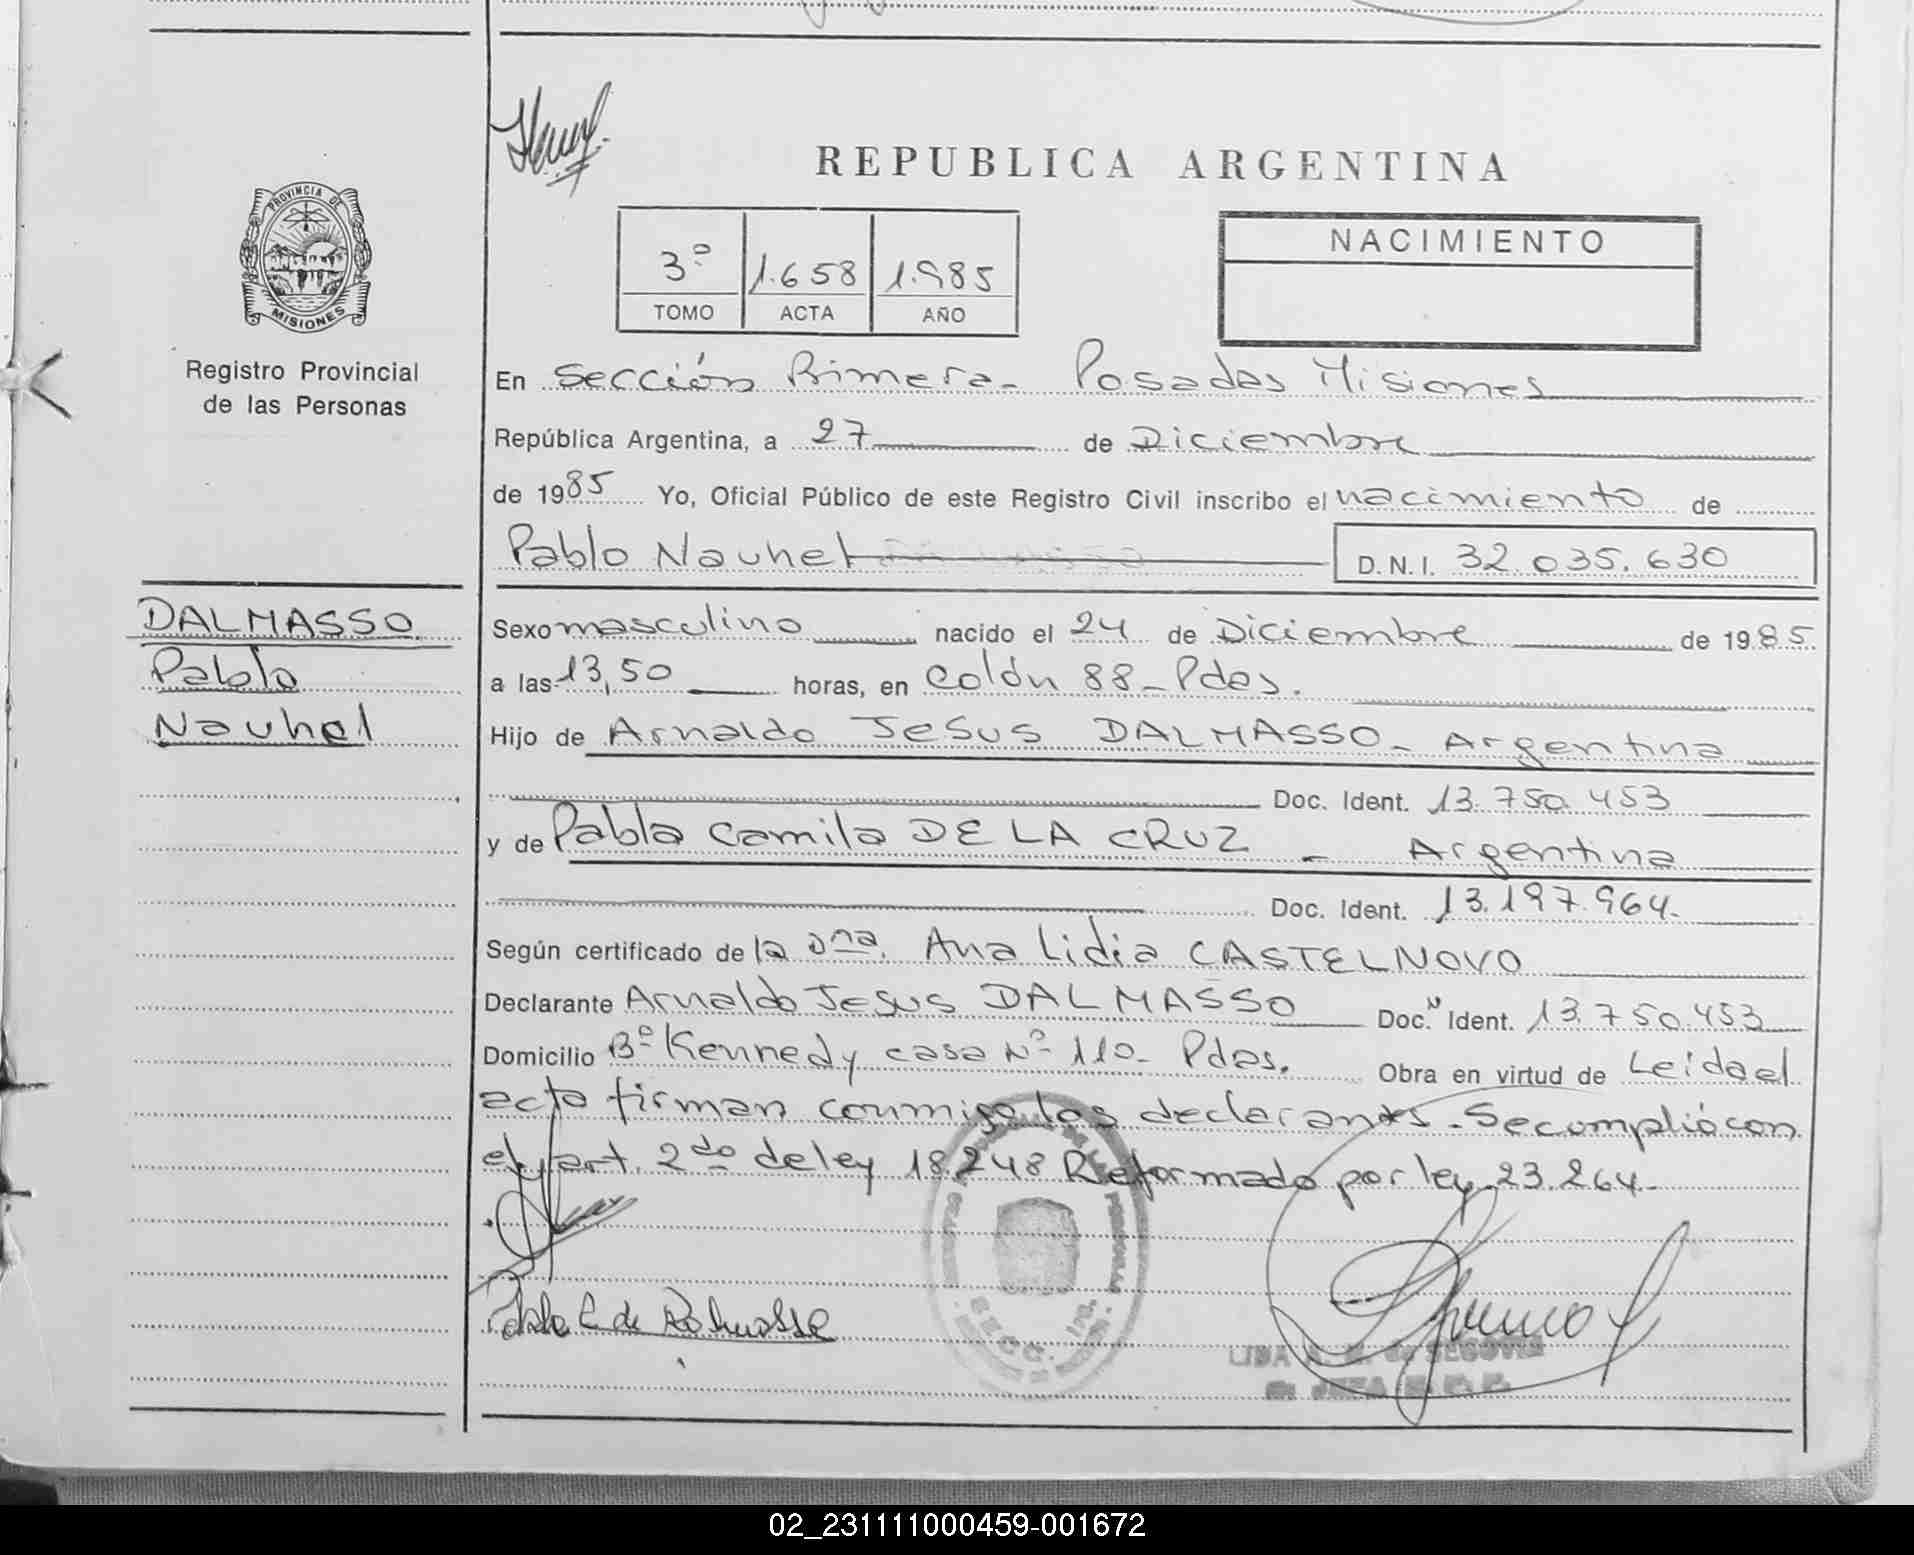 REPUBLICA ARGENTINA
PROVINCIA DE
MISIONES
Registro Provincial
de las Personas
3º 1.658 1.985
TOMO ACTA AÑO
NACIMIENTO
En Sección Primera - Posadas Misiones
República Argentina, a 27 de Diciembre
de 1985 Yo, Oficial Público de este Registro Civil inscribo el nacimiento de
Pablo Nauhel D.N.I. 32.035.630
DALMASSO
Pablo
Nauhel
Sexo masculino nacido el 24 de Diciembre de 1985
a las 13,50 horas, en Colón 88 - Pdas.
Hijo de Arnaldo Jesus DALMASSO - Argentina
Doc. Ident. 13.750.453
y de Pabla Camila DE LA CRUZ - Argentina
Doc. Ident. 13.197.964.
Según certificado de la Dna. Ana Lidia CASTELNOVO
Declarante Arnaldo Jesus DALMASSO Doc. Ident. 13.750.453
Domicilio Bº Kennedy casa Nº 110 - Pdas. Obra en virtud de Leida el
acta firman conmigo los declarantes. Se cumplió con
el art. 2do de ley 18.248 Reformado por ley 23.264.-
SECC. 1ra.
LIDA SEGOVIA
02_231111000459-001672